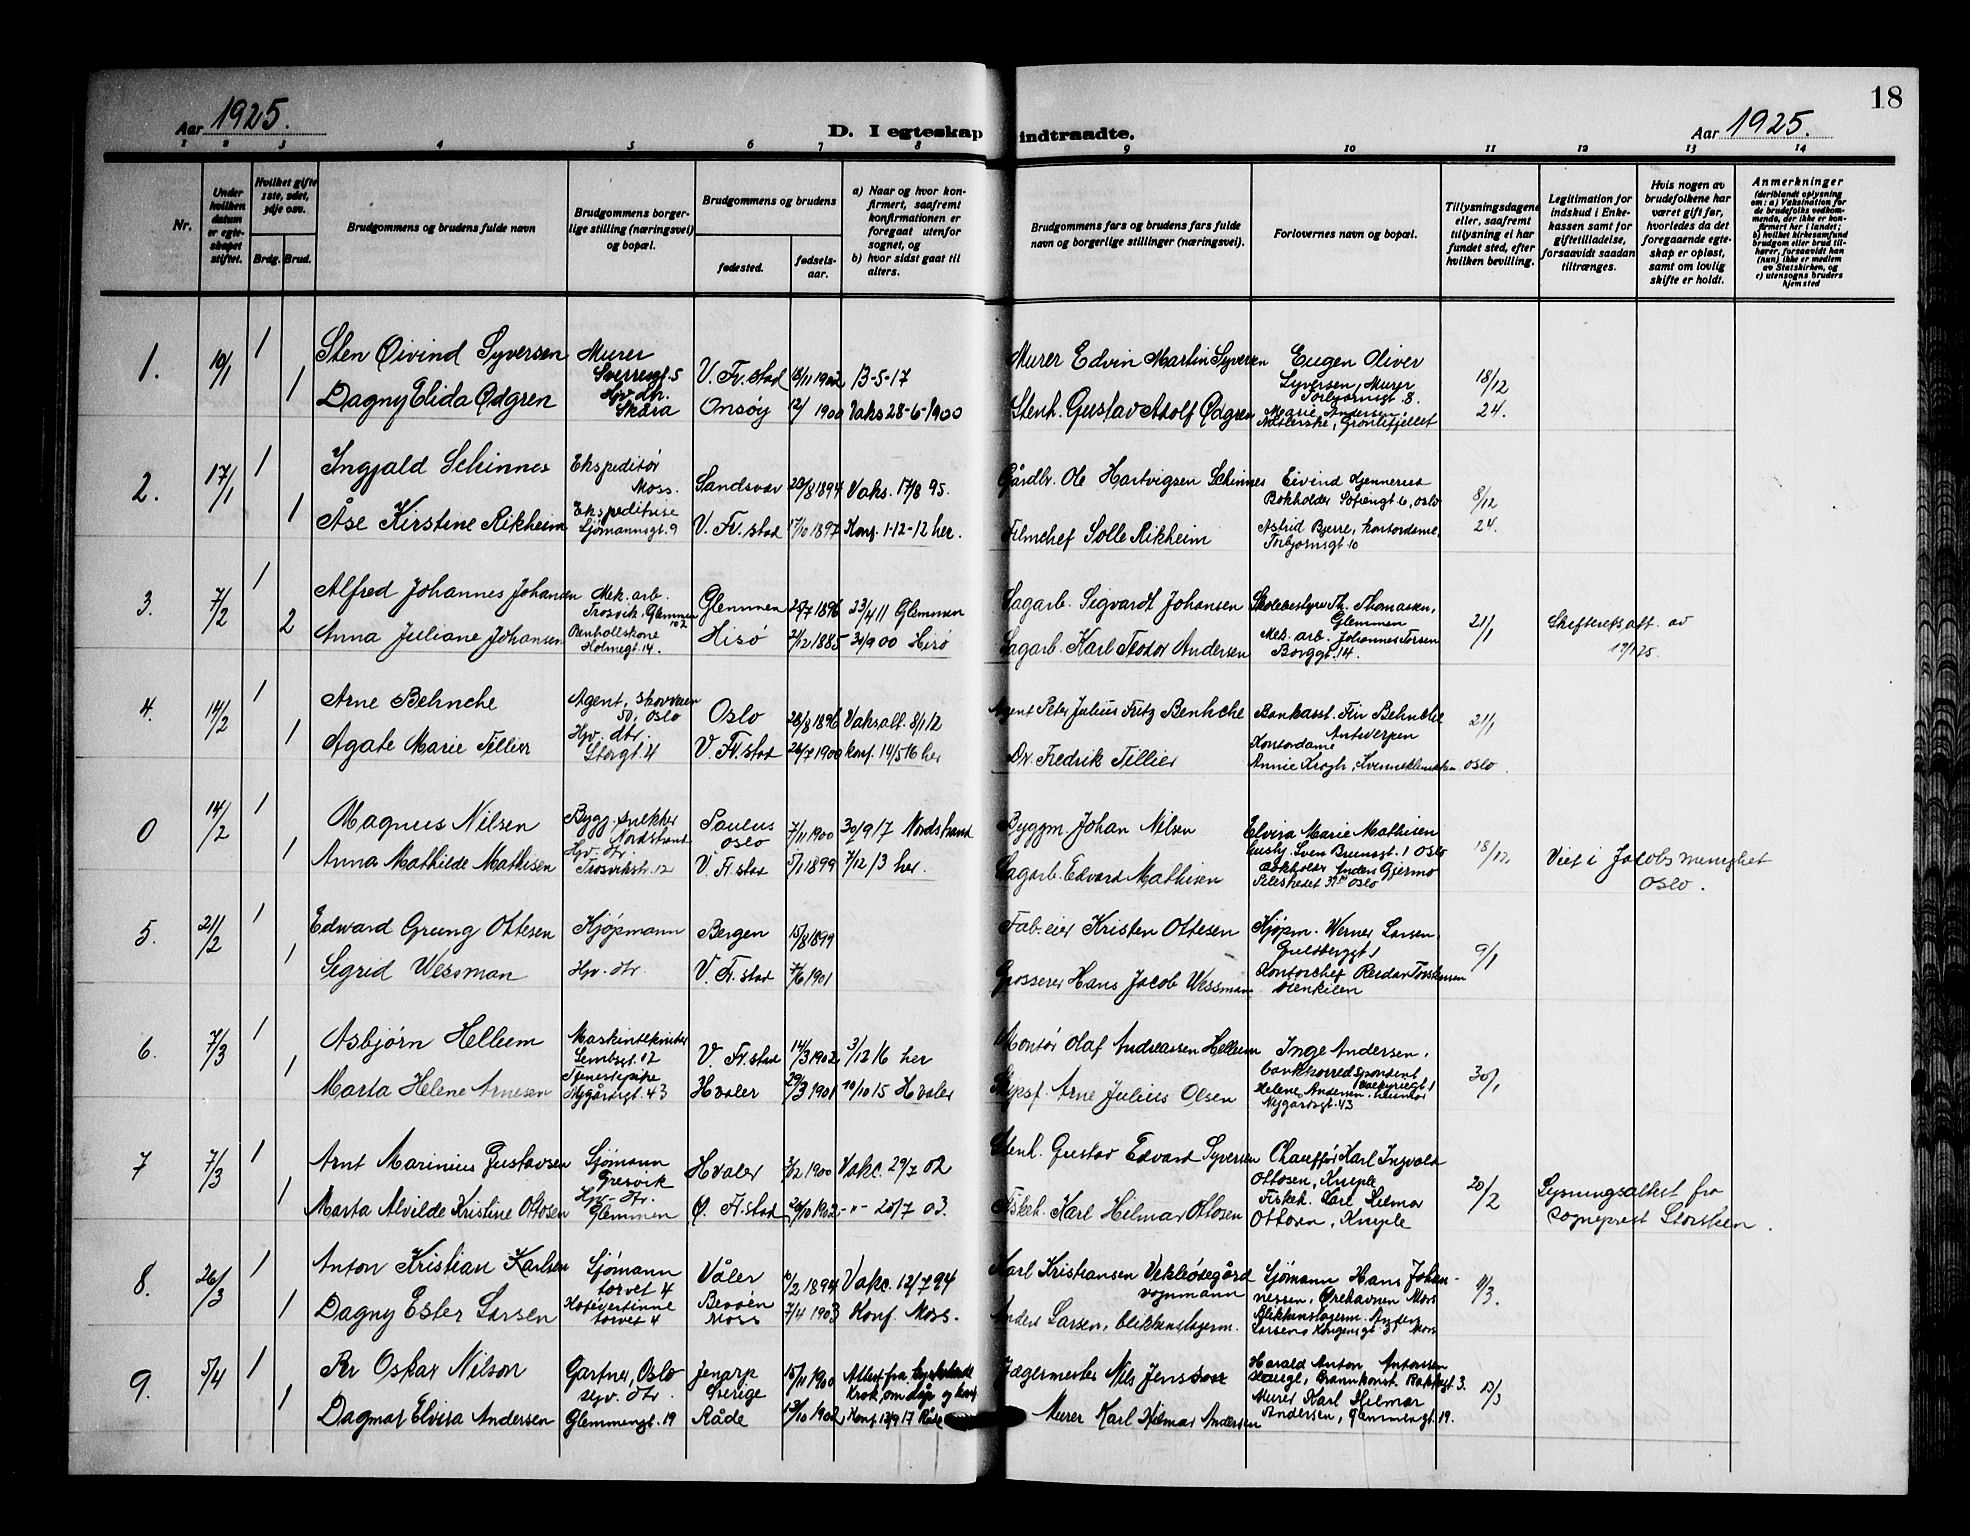 18
Aar 1925.
D. I egteskap indtraadte.
Aar 1925.
1 2 3 4 5 6 7 8 9 10 11 12 13 14
Nr.
Under hvilken datum er egteskapet stiftet.
Hvilket gifte 1ste, 2det, 3dje osv.
Brdg. Brud.
Brudgommens og brudens fulde navn
Brudgommens borgerlige stilling (næringsvei) og bopæl.
Brudgommens og brudens
fødested.
fødselsaar.
a) Naar og hvor konfirmert, saafremt konfirmationen er foregaat utenfor sognet, og
b) hvor sidst gaat til alters.
Brudgommens fars og brudens fars fulde navn og borgerlige stillinger (næringsvei).
Forlovernes navn og bopæl.
Tillysningsdagene eller, saafremt tillysning ei har fundet sted, efter hvilken bevilling.
Legitimation for indskud i Enkekassen samt for giftetilladelse, forsaavidt saadan tiltrænges.
Hvis nogen av brudefolkene har været gift før, hvorledes da det foregaaende egteskap er opløst, samt om lovlig skifte er holdt.
Anmerkninger
(deriblandt oplysning om: a) Vaksination for de brudefolks vedkommende, der ikke er konfirmert her i landet; b) hvilket kirkesamfund brudgom eller brud tilhører, forsaavidt han (hun) ikke er medlem av Statskirken, og c) utensogns bruders hjemsted
1. 10/1 1 Sten Øivind Syversen Murer Sverresgt. 5 V. Fr.stad 18/11 1902 13-5-17 Murer Edvin Martin Syversen Eugen Oliver Syversen, Murer Torbjørnsgt 8. 18/12
1 Dagny Elida Ødgren Hjv. dtr. Skåra Onsøy 12/ 1900 Vaks 28-6-1900 Stenh. Gustav Adolf Ødgren Marie Andersen, Grønlifjellet 24.
2. 17/1 1 Ingjald Schinnes Ekspeditør Moss. Sandsvær 23/8 1894 Vaks. 17/8 95. Gårdbr. Ole Hartvigsen Schinnes Eivind Kjennerud Bokholder Sofiengt 6, Oslo 8/12
1 Åse Kirstine Rikheim Ekspeditrise Sjømannsgt. 9 V. Fr.stad 17/10 1897 Konf. 1-12-12 her. Filmchef Solle Rikheim Astrid Bjerre, kontordame, Torbjørnsgt. 10 24.
3. 7/2 1 Alfred Johannes Johansen Mek. arb. Trosvik, Glemmen 102 Glemmen 25/7 1896 23/4 11 Glemmen Sagarb. Sigvardt Johansen Skolebestyrer Th. Thomassen, Glemmen 21/1 Skifteretsatt. av 19/1 25.
2 Anna Juliane Johansen Renholdskone Holmegt. 14. Hisø 21/12 1885 30/9 00 Hisø Sagarb. Karl Teodor Andersen Mek. arb. Johannes Larsen Borggt. 14.
4. 14/2 1 Arne Behncke Agent, Skovveien 50, Oslo Oslo 28/8 1896 Vaksatt. 8/1 12 Agent Peter Julius Fritz Benhcke Bankasst. Fin Behncke Antverpen 21/1
1 Agate Marie Tillier Hjv. dtr. Storgt. 4 V. Fr.stad 26/7 1900 konf. 14/5 16 her Dr. Fredrik Tillier Kontordame Annie Krogh, Kvinneklinikken Oslo.
0 14/2 1 Magnus Nilsen Bygg.snekker Nordstrand Paulus Oslo 7/11 1900 30/9 17 Nordstrand Byggm. Johan Nilsen Elvira Marie Mathisen Sven Bruunsgt. 1 Oslo 18/12 Viet i Jacobs menighet Oslo.
1 Anna Mathilde Mathisen Hjv. dtr Trosvikstr. 12 V. Fr.stad 5/1 1899 7/12 13 her. Sagarb. Edvard Mathisen Bokholder Anders Gjermo Oslo
5. 21/2 1 Edward Grung Ottesen Kjøpmann Bergen 15/8 1899 Fab.eier Kristen Ottesen Kjøpm. Werner Larsen. Guldbergsgt 1 9/1
1 Sigrid Wessman Hjv. dtr. V. Fr.stad 7/6 1901 Grosserer Hans Jacob Wessman Kontorchef Reidar Torstensen
6. 7/3 1 Asbjørn Helleem Maskintekniker Lembsgt. 12 V. Fr.stad 14/3 1902 3/12 16 her Montør Olaf Andreassen Helleem Inge Andersen, bankkorrespondent, Valkyriegt 1 30/1
1 Marta Helene Arnesen Tjenestepike Nygårdsgt. 43 Hvaler 29/3 1901 10/10 15 Hvaler Skipsf. Arne Julius Olsen Helene Andersen Nygårdsgt. 43
7 7/3 1 Arnt Marinius Gustavsen Sjømann Gresvik Hvaler 3/12 1900 Vakc. 29/7 02 Stenh. Gustav Edvard Syversen Chauffør Karl Ingvald Ottosen, Kniple 20/2 Lysningsattest fra sogneprest Storsteen.
1 Marta Alvilde Kristine Ottosen Hjv. dtr. Glemmen Ø. Fr.stad 26/10 1902 -"- 20/7 03. Fiskeh. Karl Hilmar Ottosen Fiskeh. Karl Hilmar Ottosen, Kniple
8. 26/3 1 Anton Kristian Karlsen Sjømann torvet 4 Våler 10/2 1894 Vakc. 12/7 94 Karl Kristiansen Vekleødegård vognmann Sjømann Hans Johannessen, Ørehavnen Moss 4/3.
1 Dagny Ester Larsen Hotelvertinne torvet 4 Bevøen Moss 7/4 1903 Konf. Moss. Anders Larsen, blikkenslagerm. Blikkenslagerm. Anders Larsen, Kongensgt 31 Moss
9. 5/4 1 Per Oskar Nilson Gartner, Oslo Jenarp Sverige 15/11 1900 Attest fra kyrkoherde Krok, om dåp og konf Jægermester Nils Jensson Harald Anton Antonsen Hauge, Brannkonst. Rakkegt 3. 13/3
1 Dagmar Elvira Andersen Hjv. dtr. Glemmengt. 19 Råde 13/10 1902 Konf. 13/9 17 Råde Murer Karl Hilmar Andersen Murer Karl Hilmar Andersen, Glemmengt. 19.